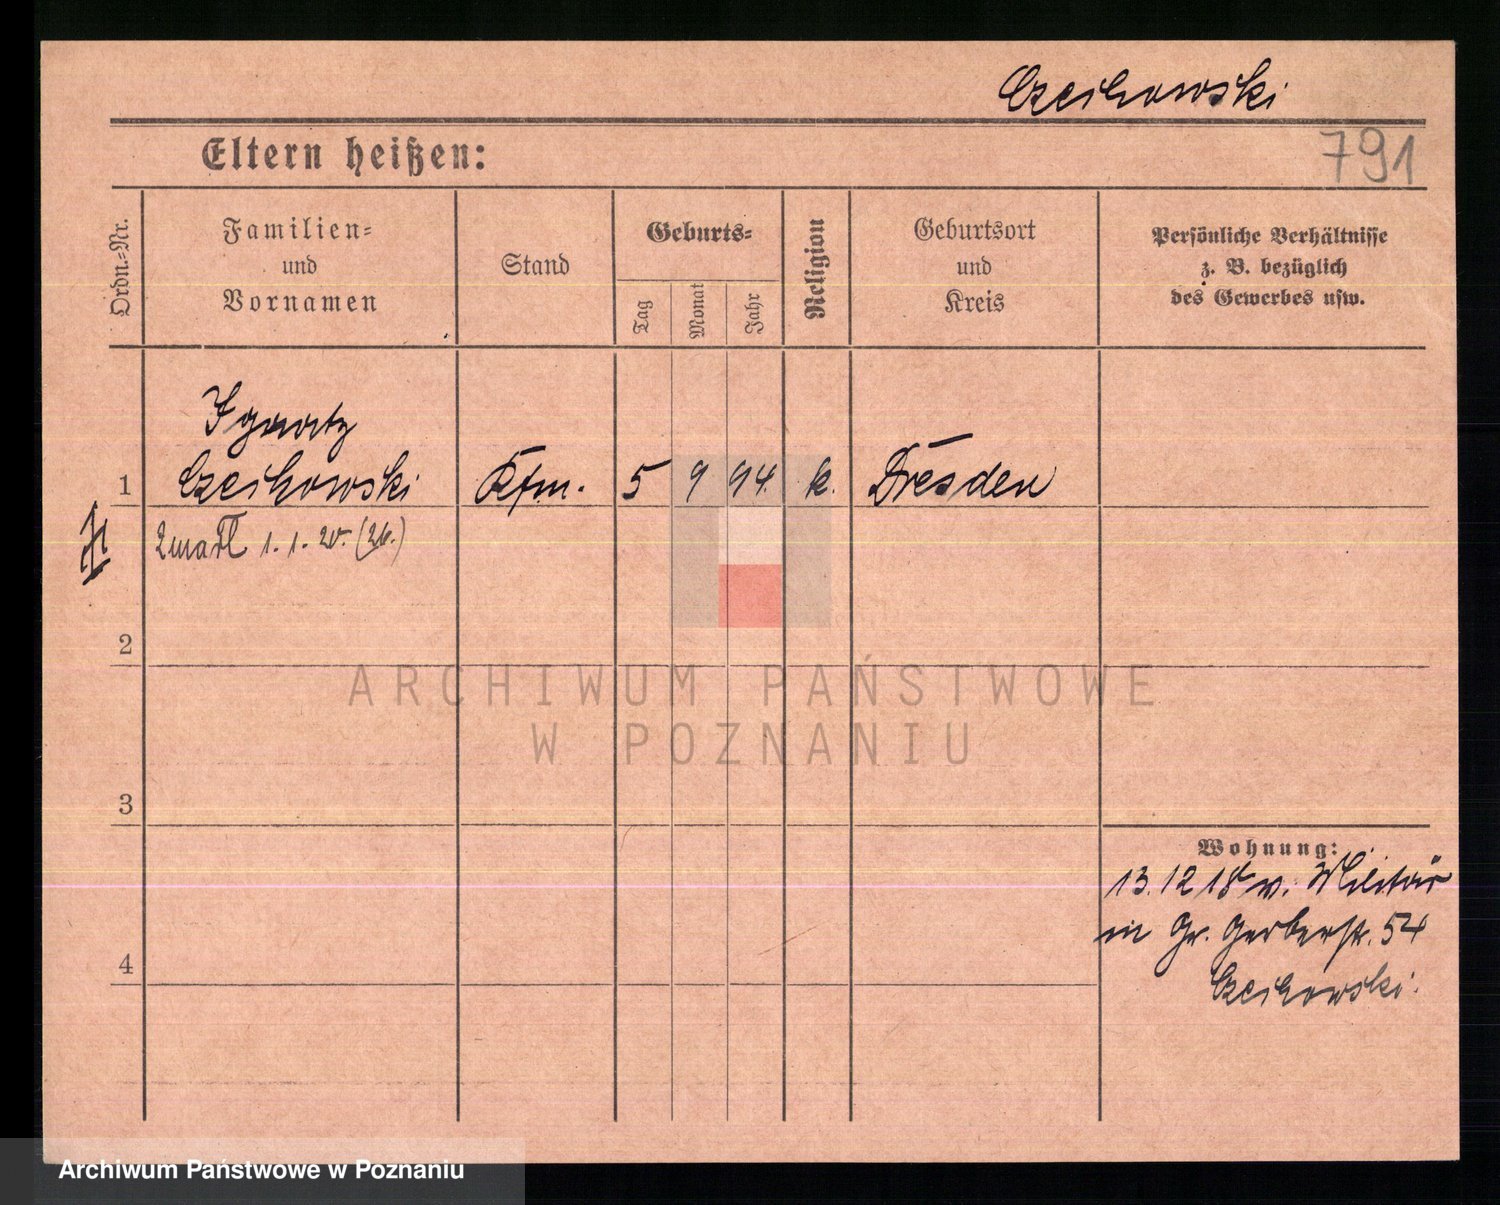 Czechowski
Eltern heißen:
791
Ordn.-Nr.
Familien-
und
Vornamen
Stand
Geburts-
Tag
Monat
Jahr
Religion
Geburtsort
und
Kreis
Persönliche Verhältnisse
z. B. bezüglich
des Gewerbes usw.
Ignatz
1 Czechowski Kfm. 5 9 94. k. Dresden
Zmarł 1. 1. 20. (26.)
2
ARCHIWUM PAŃSTWOWE
W POZNANIU
3
Wohnung:
13. 12 18 v. Militär
in Gr. Gerberstr. 54
Czechowski.
4
Archiwum Państwowe w Poznaniu